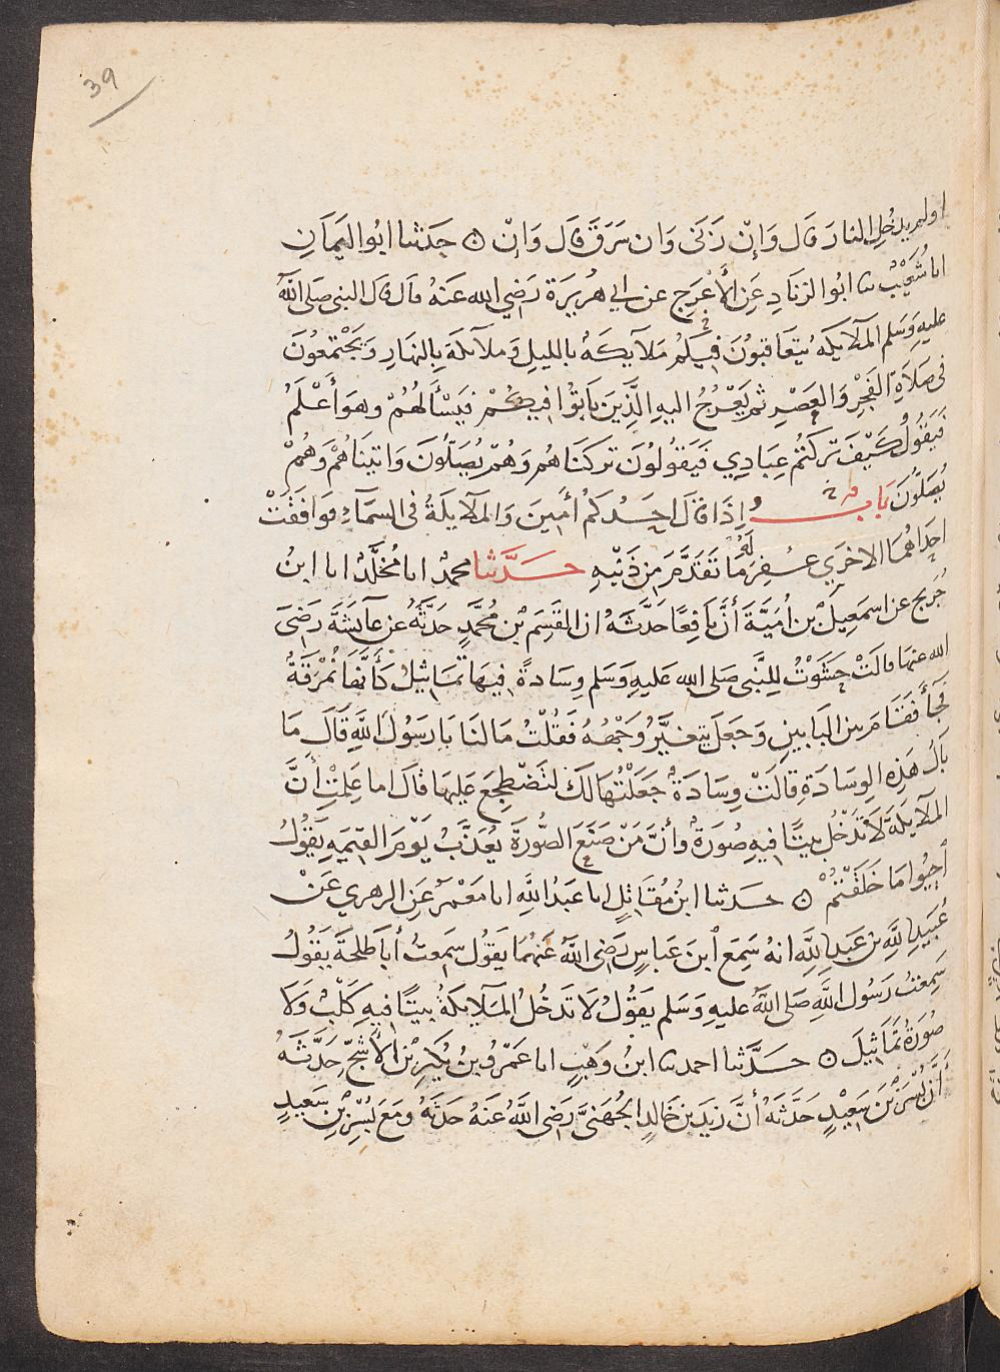 39
اولم يدخل النار قال وَاِنْ زَنَى وَان سَرَقَ قَالَ وَاِنْ ۝ حدثنا ابُو اليَمَانِ
انا شُعَيْبٌ نا ابُو الزنَادِ عَنِ الأعْرَجِ عن ابي هُريرَة رَضِي الله عَنهُ قال قال النبى صَلى اللهُ
عليهِ وَسَلم المَلائِكةُ يَتعَاقبُونَ فِيكُمْ مَلآئِكَةٌ بالليلِ وَملآئكَة بِالنهَارِ وَيَجْتَمعُونَ
فى صَلَاةِ الفَجْرِ وَالعَصْرِ ثم يَعْرُجُ اليهِ الَّذِينَ بَاتُوا فيكمْ فيَسْأَلُهُمْ وهوَ أَعْلَمُ
فَيَقُولُ كَيْفَ تركتُم عِبَادِي فَيَقُولُونَ تركنَاهُم وَهُمْ يُصَلُّونَ وَاتينَاهُمْ وَهُمْ
يُصَلُّونَ بَاب اِذَا قالَ احَدُكُم أَمِينَ وَالمَلائِكَةُ فى السمَآءِ فوَافَقَتْ
احِدَاهُمَا الاخرَي غُفِرَ لَهُ مَا تَقَدَّمَ مِن ذَنْبِهِ حَدَّثنا محمدٌ انا مُخَلَّدٌ انا ابنُ
جُرَيج عن اسمَعِيلَ بْنِ أُمَيَّةَ أَنَّ نَافِعًا حَدَّثَهُ ان القسِمَ بْنَ مُحمَّدٍ حَدثَهُ عن عآئِشَةَ رَضىَ
الله عنهَا قالَتْ حَشَوْتُ لِلنَّبى صَلى الله عَليهِ وَسَلم وِسَادةً فيهَا تَمَاثِيلُ كَأنَّهَا نُمْرَقَةٌ
فجَآ فقَامَ بين البَابينِ وَجَعَلَ يتغيَّرُ وَجْهُهُ فَقُلْتُ مَا لنَا يَا رَسُولَ اللهِ قَالَ مَا
بَالُ هَذِهِ الوِسَادَةِ قالَتْ وِسَادَةٌ جَعَلْتُهَا لَكَ لتَضْطجِعَ عَليهَا قالَ اما عَلِمْتِ أنَّ
المَلآئكَةَ لاَ تَدْخُلُ بيتًا فيهِ صُورَةٌ وأنَّ مَنْ صَنَعَ الصُّورَةَ يُعَذَّبُ يَوْمَ القِيمَةِ يَقُولُ
اَحيُوا مَا خَلَقْتُمْ ۝ حدثنا ابنُ مُقَاتِلٍ انا عَبدُ اللهِ انا مَعْمَرٌ عَنِ الزهري عَنْ
عُبَيدِ اللهِ بن عَبدِ اللهِ انهُ سَمِعَ ابنَ عَبَاسٍ رَضى اللهُ عَنهُمَا يَقُول سَمعتُ أبَا طلحَةَ يَقُولُ
سَمِعتُ رَسُولَ اللَّهِ صَلى اللهُ عليهِ وَسَلم يَقُولُ لاَ تَدخُلُ المَلَآئِكَةُ بيتًا فيهِ كَلْبٌ وَلَا
صُورَةُ تَمَاثيلَ ۝ حَدَّثنا احمد نا ابنُ وَهبٍ انا عَمْرُو بنُ بُكَيرِ بْنِ الأشَجّ حَدَّثَهُ
أنَّ بُسْرَ بْنَ سَعِيْدٍ حَدَّثَهُ أنَّ زيَدَ بن خَالدٍ الجُهَنىَّ رَضِى اللهُ عَنهُ حَدثَهُ وَمَعَ بُسْرِ بْنِ سَعيدٍ